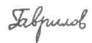 Гаврилов